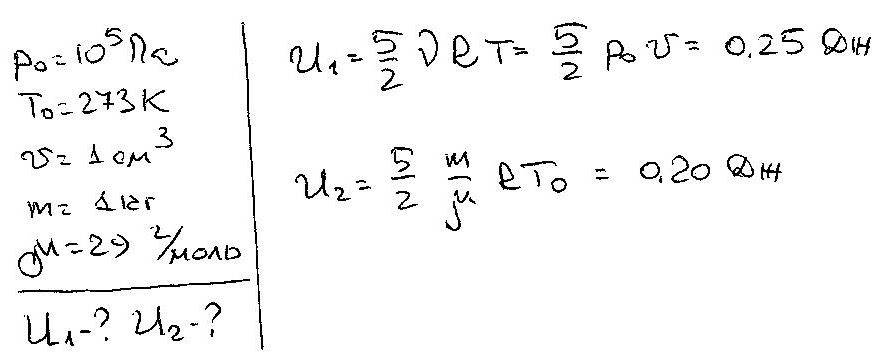 p₀ = 10⁵ Па
T₀ = 273 К
v = 1 см³
m = 1 кг
μ = 29 г/моль
U₁ - ? U₂ - ?
U₁ = 5/2 ν R T = 5/2 p₀ v = 0.25 Дж
U₂ = 5/2 m/μ R T₀ = 0.20 Дж